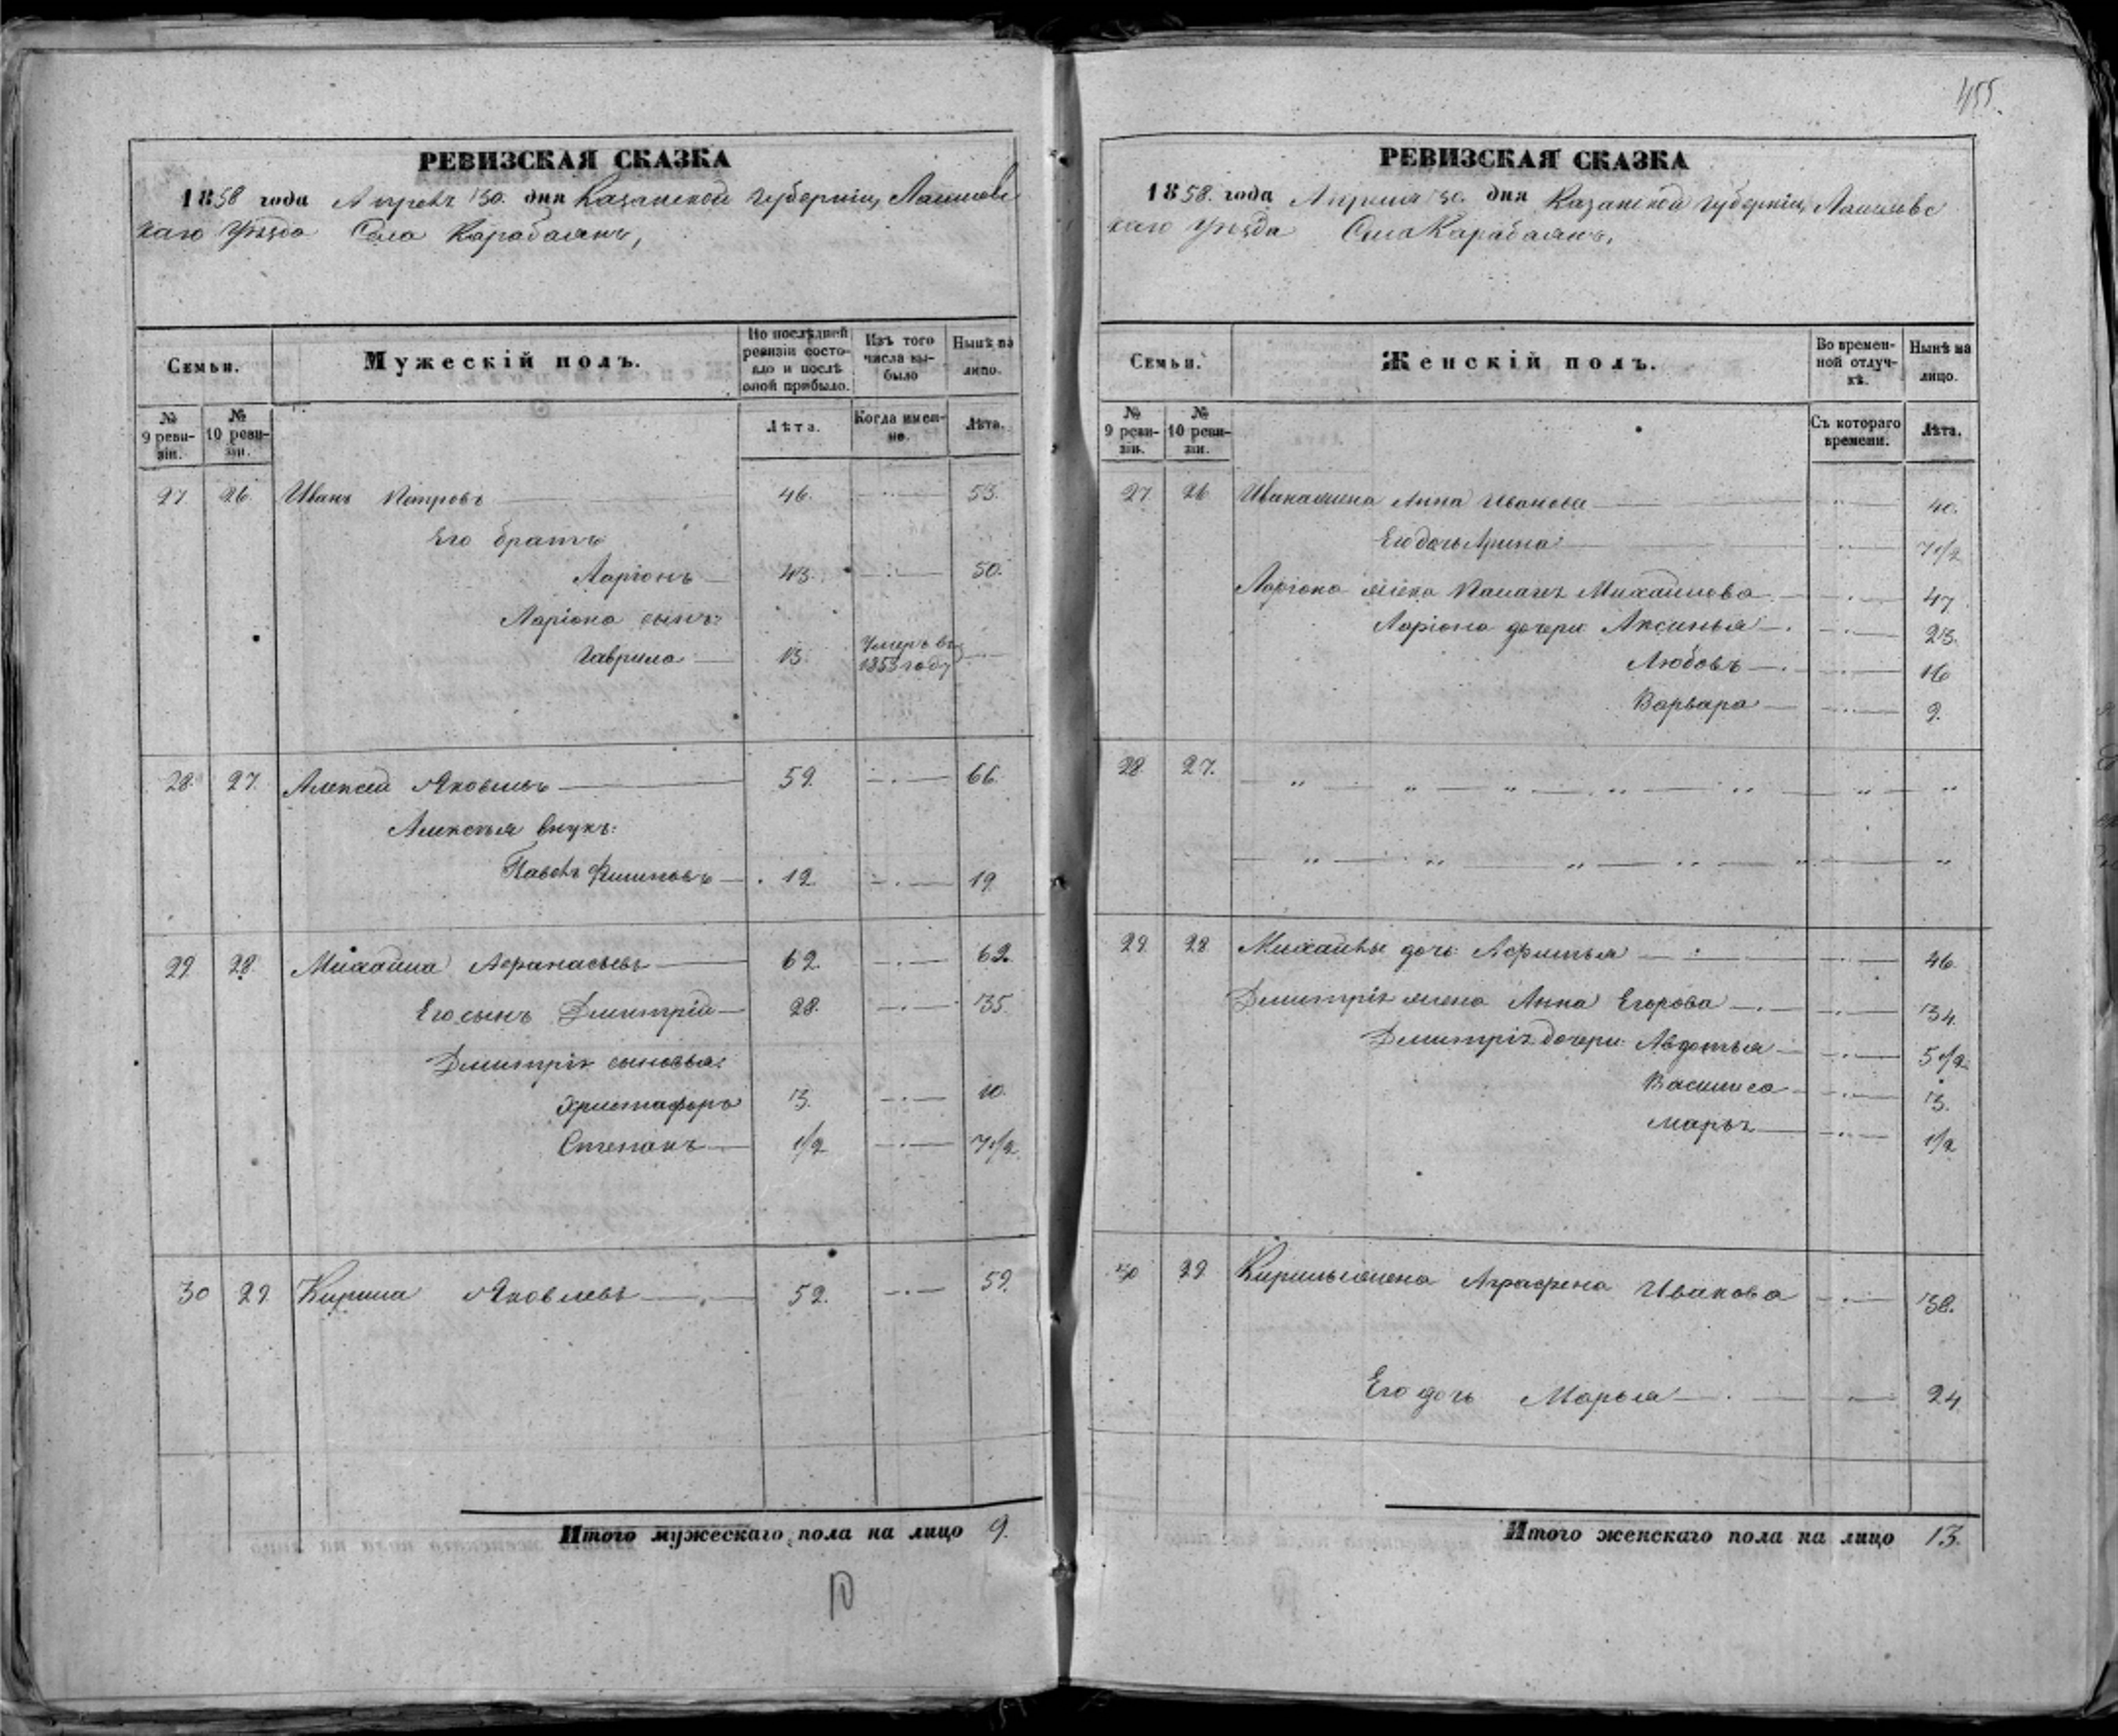 455.
РЕВИЗСКАЯ СКАЗКА
1858 года Апреля 30. дня Казанской губерніи, Лаишевс
каго Уѣзда Села Карабаянъ,
Семьи.
Мужескій полъ.
По послѣдней ревизіи состояло и послѣ оной прибыло.
Изъ того числа выбыло
Нынѣ на лицо.
№ 9 ревизіи.
№ 10 ревизіи.
Лѣта.
Когда именно.
Лѣта.
27. 26. Иванъ Петровъ 46. 53.
Его братъ
Ларіонъ 43. 50.
Ларіона сынъ:
Гаврила 13. Умеръ въ 1853 году
28. 27. Алексей Яковлевъ 59. 66.
Алексѣя внукъ:
Павелъ Филиповъ 12. 19.
29. 28. Михайла Афанасьевъ 62. 69.
Его сынъ Дмитрій 28. 35.
Дмитрія сыновья:
Христафоръ 3. 10.
Степанъ 1/2 7 1/2
30 29. Кирила Яковлевъ 52. 59.
Итого мужескаго пола на лицо 9.
10
РЕВИЗСКАЯ СКАЗКА
1858. года Апреля 30. дня Казанской губерніи, Лаишевс
каго Уѣзда Села Карабаянъ,
Семьи.
Женскій полъ.
Во временной отлучкѣ.
Нынѣ на лицо.
№ 9 ревизіи.
№ 10 ревизіи.
Съ котораго времени.
Лѣта.
27. 26 Ивана жена Анна Иванова 40.
Его дочь Арина 7 1/2
Ларіона жена Палагея Михайлова 47
Ларіона дочери Аксинья 23.
Любовь 16
Варвара 9.
28. 27.
29. 28 Михайлы дочь Афимья 46.
Дмитрія жена Анна Егорова 34.
Дмитрія дочери Авдотья 5 1/2
Василиса 3.
Марья 1/2
30 29 Кирилы жена Аграфена Иванова 38.
Его дочь Марья 24
Итого женскаго пола на лицо 13.